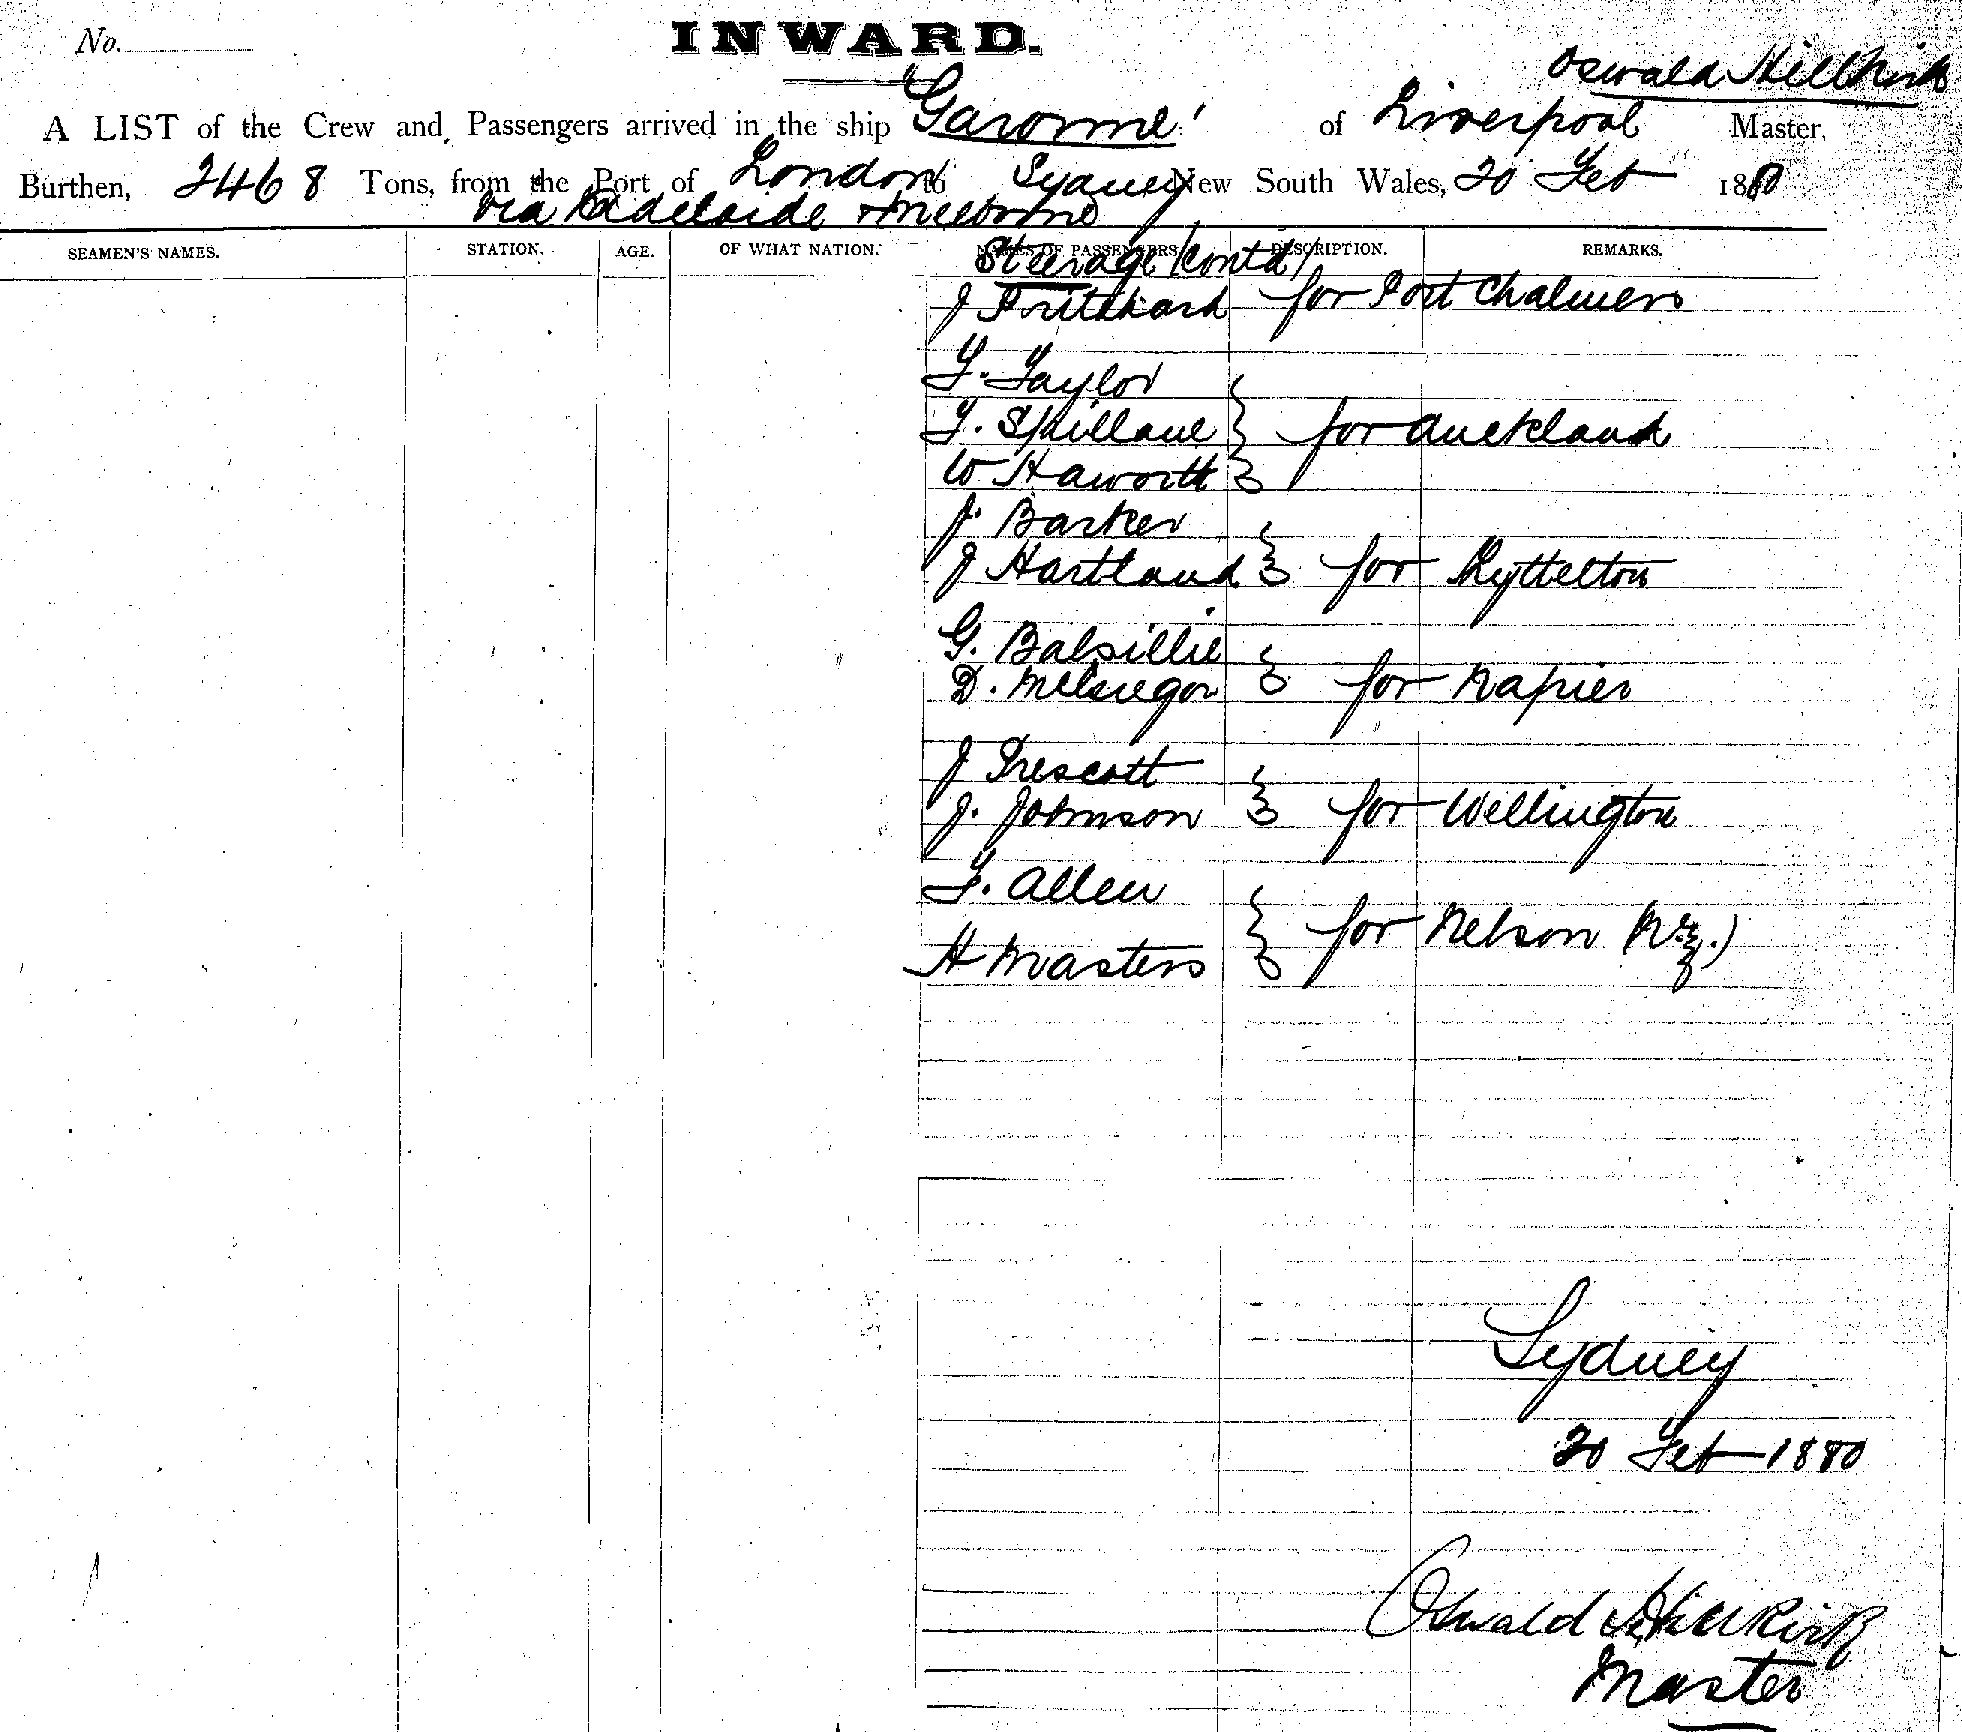 No.
INWARD.
Oswald Hillkirk
A LIST of the Crew and Passengers arrived in the ship "Garonne" of Liverpool Master,
Burthen, 2468 Tons, from the Port of London to Sydney New South Wales, 20 Feb 1880
via Adelaide & Melbourne
SEAMEN'S NAMES. STATION. AGE. OF WHAT NATION. NAMES OF PASSENGERS. DESCRIPTION. REMARKS.
Steerage (contd)
J Pritchard for Port Chalmers
T. Taylor
T. Spillane for Auckland
W Haworth
J. Barker
J Hartland for Lyttelton
G. Balsillie
D. McGregor for Napier
J Prescott
J. Johnson for Wellington
T. Allen
H Masters for Nelson (N.Z.)
Sydney
20 Feb 1880
Oswald Hillkirk
Master